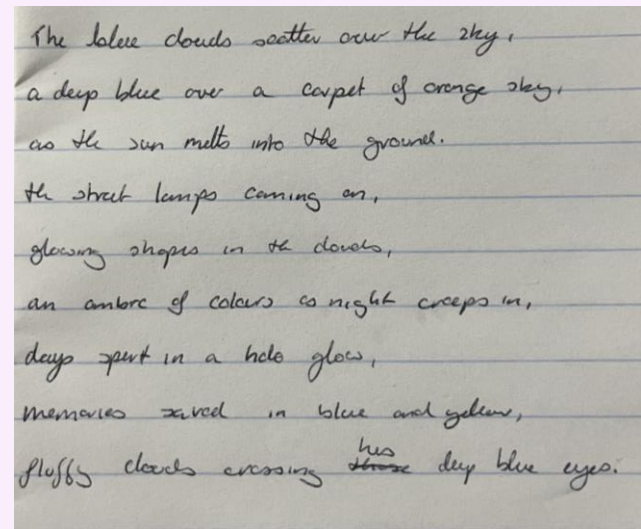 The blue clouds scatter over the sky,
a deep blue over a carpet of orange sky,
as the sun melts into the ground.
the street lamps coming on,
glowing shapes in the clouds,
an ombre of colours as night creeps in,
days spent in a halo glow,
memories saved in blue and yellow,
fluffy clouds crossing his deep blue eyes.